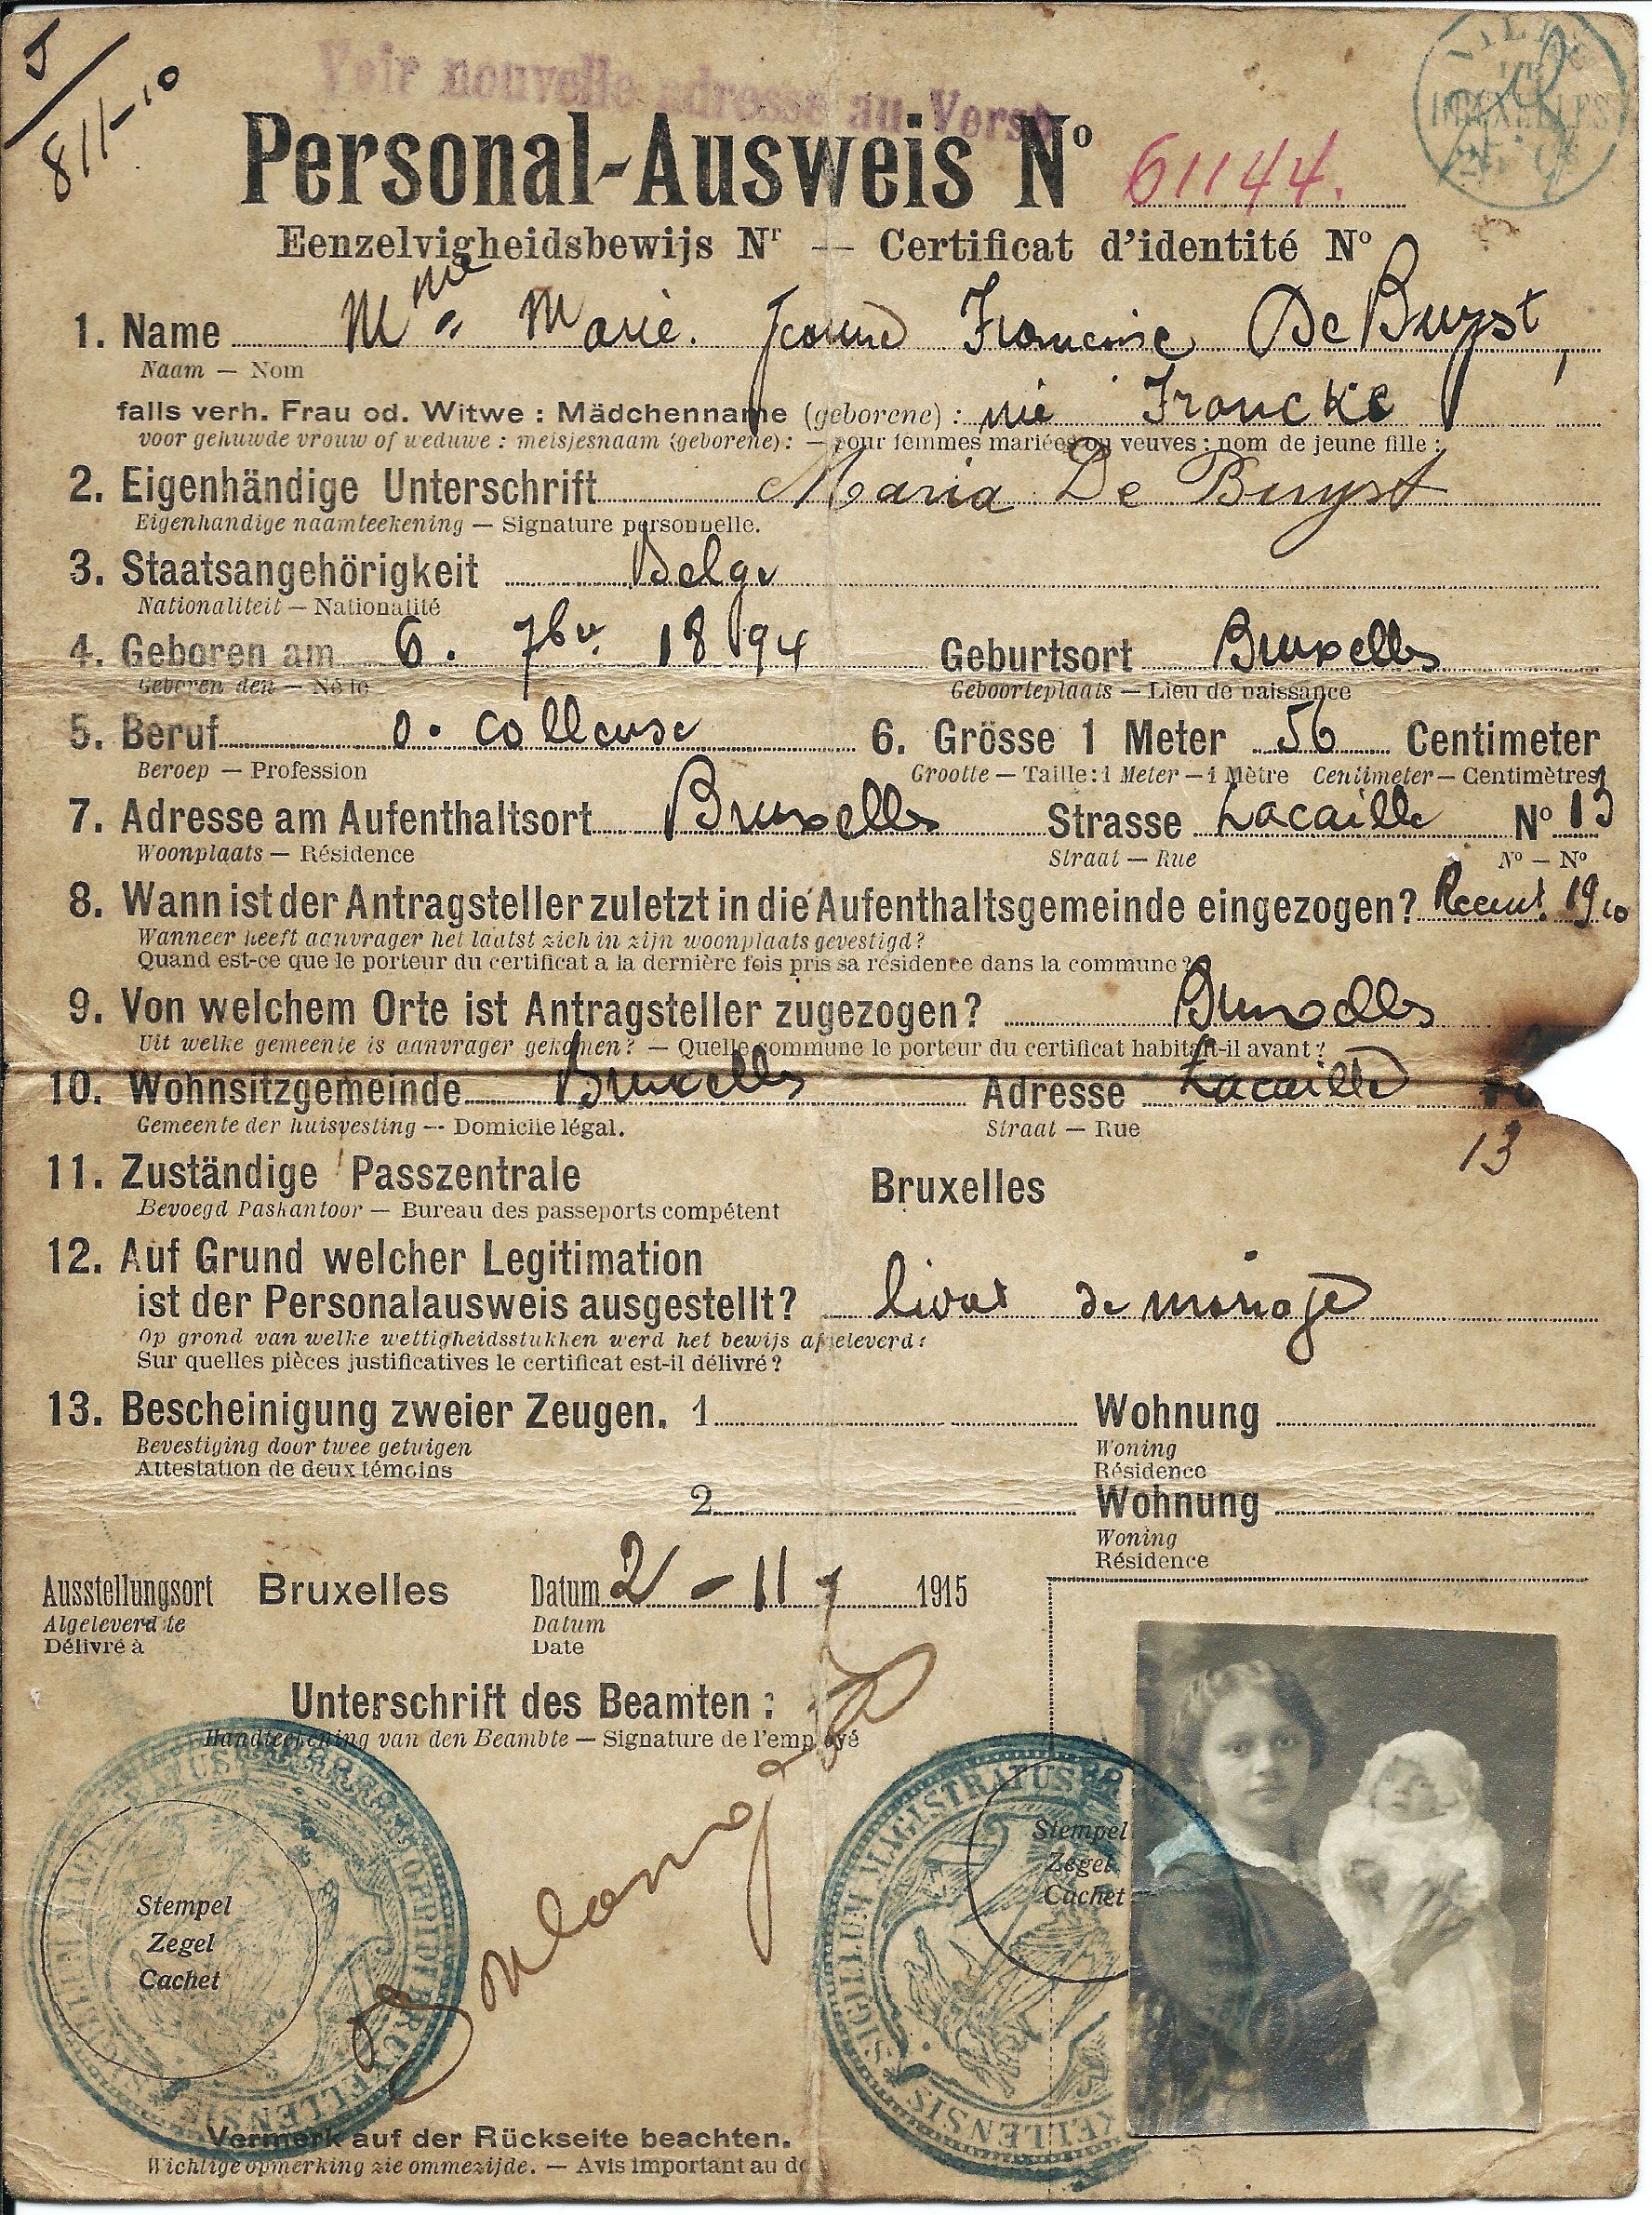 5
811-10
Voir nouvelle adresse au Verso
VILLE
DE
BRUXELLES
Personal-Ausweis Nº 61144.
Eenzelvigheidsbewijs Nr — Certificat d'identité Nº
1. Name Mme Marie. Jeanne Francine De Buyst,
Naam — Nom
falls verh. Frau od. Witwe : Mädchenname (geborene) : née Francke
voor gehuwde vrouw of weduwe : meisjesnaam (geborene) : — pour femmes mariées ou veuves : nom de jeune fille :
2. Eigenhändige Unterschrift Maria De Buyst
Eigenhandige naamteekening — Signature personnelle.
3. Staatsangehörigkeit Belge
Nationaliteit — Nationalité
4. Geboren am 6. 7bre 1894 Geburtsort Bruxelles
Geboren den — Né le Geboorteplaats — Lieu de naissance
5. Beruf o. colleuse 6. Grösse 1 Meter 56 Centimeter
Beroep — Profession Grootte — Taille : 1 Meter — 1 Mètre Centimeter — Centimètres
7. Adresse am Aufenthaltsort Bruxelles Strasse Lacaille Nº 13
Woonplaats — Résidence Straat — Rue Nº — Nº
8. Wann ist der Antragsteller zuletzt in die Aufenthaltsgemeinde eingezogen? Recent. 1910
Wanneer heeft aanvrager het laatst zich in zijn woonplaats gevestigd?
Quand est-ce que le porteur du certificat a la dernière fois pris sa résidence dans la commune?
9. Von welchem Orte ist Antragsteller zugezogen? Bruxelles
Uit welke gemeente is aanvrager gekomen? — Quelle commune le porteur du certificat habitait-il avant?
10. Wohnsitzgemeinde Bruxelles Adresse Lacaille
Gemeente der huisvesting -- Domicile légal. Straat — Rue
13
11. Zuständige Passzentrale Bruxelles
Bevoegd Paskantoor — Bureau des passeports compétent
12. Auf Grund welcher Legitimation
ist der Personalausweis ausgestellt? livret de mariage
Op grond van welke wettigheidsstukken werd het bewijs afgeleverd?
Sur quelles pièces justificatives le certificat est-il délivré?
13. Bescheinigung zweier Zeugen. 1 Wohnung
Bevestiging door twee getuigen Woning
Attestation de deux témoins Résidence
2 Wohnung
Woning
Résidence
Ausstellungsort Bruxelles Datum 2-11- 1915
Algeleverd te Datum
Délivré à Date
Unterschrift des Beamten :
Handteekening van den Beambte — Signature de l'employé
SIGILLUM MAGISTRATUS
Stempel
Zegel
Cachet
Stempel
Zegel
Cachet
Vermerk auf der Rückseite beachten.
Wichtige opmerking zie ommezijde. — Avis important au do